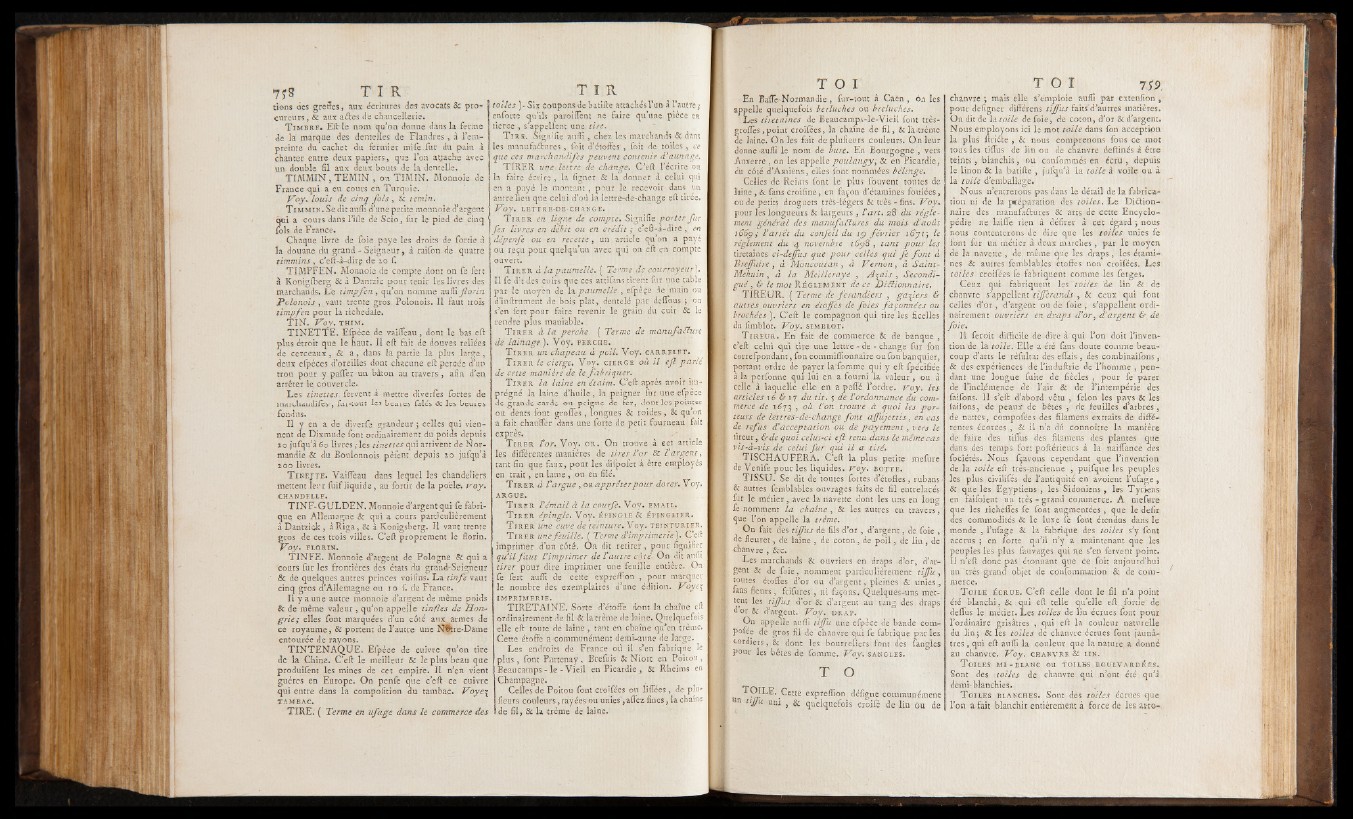 758 T I R
tions des greffes, aux écritures des avocats & pro-
cureurs, & aux actes de chancellerie.
TIMBRE. Est le nom qu'on donne dans la ferme
de la marque des dentelles de Flandres, à l'em-
preinte du cachet du fermier mise sur du pain à
chanter entre deux papiers, que l'on attache avec
un double fil aux deux bouts de la dentelle.
TIMMIN, TEMIN, ou TIMIN. Monnoie de
France qui a eu cours en Turquie.
Voy. louis de cinq sols, & temin.
TIMMIN. Se dit aussi d'une petite monnoie d'argent
qui a cours dans l'isle de Scio, sur le pied de cinq
sols de France.
Chaque livre de soie paye les droits de sortie à
la douane du grand-Seigneur, à raison de quatre
timmins, c'est-à-dire de 20 s.
TIMPFEN. Monnoie de compte dont on se sert
à Konigsberg & à Dantzic pour tenir les livres des
marchands. Le timpfen, qu'on nomme aussi florin
Polonois, vaut trente gros Polonois. Il faut trois
timpfen pour la richedale.
TIN. Voy. THIM.
TINETTE. Espèce de vaisseau, dont le bas est
plus étroit que le haut. Il est fait de douves reliées
de cerceaux, & a, dans la partie la plus large,
deux espèces d'oreilles dont chacune est percée d'un
trou pour y passer un bâton au travers, afin d'en
arrêter le couvercle.
Les tinettes servent à mettre diverses sortes de
marchandises, sur-tout les beurres salés & les beurres
fondus.
Il y en a de diverse grandeur; celles qui vien-
nent de Dixmude sont ordinairement du poids depuis
20 jusqu'à 60 livres; les tinettes qui arrivent de Nor-
mandie & du Boulonnois pèsent depuis 20 jusqu'à
200 livres.
TINETTE. Vaisseau dans lequel les chandeliers
mettent leur suif liquide, au sortir de la poêle. Voy.
CHANDELLE.
TINF-GULDEN. Monnoie d'argent qui se fabri-
que en Allemagne & qui a cours particulièrement
à Dantzick, à Riga, & à Konigsberg. Il vaut trente
gros de ces trois villes. C'est proprement le florin.
Voy. FLORIN.
TINFE. Monnoie d'argent de Pologne & qui a
cours sur les frontières des états du grand-Seigneur
& de quelques autres princes voisins. La tinfe vaut
cinq gros d'Allemagne ou 10 s. de France.
Il y a une autre monnoie d'argent de même poids
& de même valeur, qu'on appelle tinfles de Hon-
grie; elles sont marquées d'un côté aux armes de
ce royaume, & portent de l'autre une Notre-Dame
entourée de rayons.
TINTENAQUE. Espèce de cuivre qu'on tire
de la Chine. C'est le meilleur & le plus beau que
produisent les mines de cet empire. Il n'en vient
guères en Europe. On pense que c'est ce cuivre
qui entre dans la composition du tambac. Voyez
TAMBAC.
TIRE. ( Terme en usage dans le commerce des
T I R
toiles ). Six coupons de batiste attachés l'un à l'autre,
ensorte qu'ils paroissent ne faire qu'une pièce en
tière, s'appellent une tire.
TIRE. Signifie aussi, chez les marchands & dans
les manufactures, soit d'étoffes, soit de toiles, ce
que ces marchandises peuvent contenir d'aunage.
TIRER une lettre de change. C'est l'écrire ou
la faire écrire, la signer & la donner à celui qui
en a payé le montant, pour le recevoir dans un
autre lieu que celui d'où la lettre-de-change est tirée.
Voy. LETTRE-DE-CHANGE.
TIRER en ligne de compte. Signifie porter sur
ses livres en débit ou en crédit; c'est-à-dire, en
dépense ou en recette, un article qu'on a payé
ou reçu pour quelqu'un avec qui on est en compte
ouvert.
TIRER à la paumelle. ( Terme de courroyeur ).
Il se dit des cuirs que ces artisans tirent sur une table
par le moyen de la paumelle, espèce de main ou
d'instrument de bois plat, dentelé par dessous; on
s'en sert pour faire revenir le grain du cuir & le
rendre plus maniable.
TIRER à la perche. ( Terme de manufacture
de lainage ). Voy. PERCHE.
TIRER un chapeau à poil. Voy. CARRELET.
TIRER le cierge. Voy. CIERGE où il est parlé
de cette manière de le fabriquer.
TIRER la laine en étaim. C'est après avoir im-
prégné la laine d'huile, la peigner sur une espèce
de grande carde ou peigne de fer, dont les pointes
ou dents sont grosses, longues & roides, & qu'on
a fait chauffer dans une sorte de petit fourneau fait
exprès.
TIRER l'or. Voy. OR. On trouve à cet article
les différentes manières de tirer l'or & l'argent,
tant fin que faux, pour les disposer à être employés
en trait, en lame, ou en filé.
TIRER à l'argue, ou apprêter pour dorer. Voy.
ARGUE.
TIRER l'émail à la course. Voy. EMAIL.
TIRER épingle. Voy. ÉPINGLE & ÉPINGLIER.
TIRER une cuve de teinture. Voy. TEINTURIER.
TIRER une feuille. ( Terme d'imprimerie ). C'est
imprimer d'un côté. On dit retirer, pour signifier
qu'il faut l'imprimer de l'autre côté. On dit aussi
tirer pour dire imprimer une feuille entière. On
se sert aussi de cette expression, pour marquer
le nombre des exemplaires d'une édition. Voyez
IMPRIMERIE.
TIRETAINE. Sorte d'étoffe dont la chaîne est
ordinairement de fil & la trême de laine. Quelquefois
elle est toute de laine, tant en chaîne qu'en trême.
Cette étoffe a communément demi-aune de large.
Les endroits de France où il s'en fabrique le
plus, sont Partenay, Bressuis & Niort en Poitou,
Beaucamps-le-Vieil en Picardie, & Rheims en
Champagne.
Celles de Poitou sont croisées ou lissées, de plu-
sieurs couleurs, rayées ou unies, assez fines, la chaîne
de fil, & la trême de laine.
T O I
En Basse-Normandie, sur-tout à Caën, on les
appelle quelquefois berluches ou breluches.
Les tiretaines de Beaucamps-le-Vieil sont très-
grosses, point croisées, la chaîne de fil, & la trême
de laine. On les fait de plusieurs couleurs. On leur
donne aussi le nom de bure. En Bourgogne, vers
Auxerre, on les appelle poulangy, & en Picardie,
du côté d'Amiens, elles sont nommées belinge.
Celles de Reims sont le plus souvent toutes de
laine, & sans croisure, en façon d'étamines foulées,
ou de petits droguets très-légers & très-fins. Voy.
pour les longueurs & largeurs, l'art. 28 du régle-
ment général des manufactures du mois d'août
1669; l'arrêt du conseil du 19 février 1671; le
réglement du 4 novembre 1698, tant pour les
tiretaines ci-dessus que pour celles qui se font à
Bressuire, à Moncoutan, à Vernon, à Saint-
Mesmin, à la Meilleraye, Azais, Secondi-
gné, & le mot RÉGLEMENT de ce Dictionnaire.
TIREUR. ( Terme de ferandiers, gaziers &
autres ouvriers en étoffes de soies façonnées ou
brochées ). C'est le compagnon qui tire les ficelles
du simblot. Voy. SIMBLOT.
TIREUR. En fait de commerce & de banque,
c'est celui qui tire une lettre-de-change sur son
correspondant, son commissionnaire ou son banquier,
portant ordre de payer la somme qui y est spécifiée
à la personne qui lui en a fourni la valeur, ou à
celle à laquelle elle en a passé l'ordre. Voy. les
articles 16 & 17 du tit. 5 de l'ordonnance du com-
merce de 1673, où l'on trouve à quoi les por-
teurs de lettres-de-change sont assujettis, en cas
de refus d'acceptation ou de payement, vers le
tireur, & de quoi celui-ci est tenu dans le même cas
vis-à-vis de celui sur qui il a tiré.
TISCHAUFERA. C'est la plus petite mesure
de Venise pour les liquides. Voy. BOTTE.
TISSU. Se dit de toutes sortes d'étoffes, rubans
& autres semblables ouvrages faits de fil entrelacés
sur le métier, avec la navette dont les uns en long
se nomment la chaîne, & les autres en travers,
que l'on appelle la trême.
On fait des tissus de fils d'or, d'argent, de soie,
de fleuret, de laine, de coton, de poil, de lin, de
chanvre, &c.
Les marchands & ouvriers en draps d'or, d'ar-
gent & de soie, nomment particulièrement tissu,
toutes étoffes d'or ou d'argent, pleines & unies,
sans fleurs, frisures, ni façons. Quelques-uns met-
tent les tissus d'or & d'argent au rang des draps
d'or & d'argent. Voy. DRAP.
On appelle aussi tissu une espèce de bande com-
posée de gros fil de chanvre qui se fabrique par les
cordiers, & dont les bourreliers font des sangles
pour les bêtes de somme. Voy. SANGLES.
T O
TOILE. Cette expression désigne communément
un tissu uni, & quelquefois croisé de lin ou de
T O I 759
chanvre; mais elle s'emploie aussi par extension,
pour désigner différens tissus faits d'autres matières.
On dit de la toile de soie, de coton, d'or & d'argent.
Nous employons ici le mot toile dans son acception
la plus stricte, & nous comprenons sous ce mot
tous les tissus de lin ou de chanvre destinés à être
teints, blanchis, ou consommés en écru, depuis
le linon & la batiste, jusqu'à la toile à voile ou à
la toile d'emballage.
Nous n'entrerons pas dans le détail de la fabrica-
tion ni de la préparation des toiles. Le Diction-
naire des manufactures & arts de cette Encyclo-
pédie ne laisse rien à désirer à cet égard; nous
nous contenterons de dire que les toiles unies se
font sur un métier à deux marches, par le moyen
de la navette, de même que les draps, les étami-
nes & autres semblables étoffes non croisées. Les
toiles croisées se fabriquent comme les serges.
Ceux qui fabriquent les toiles de lin & de
chanvre s'appellent tisserands, & ceux qui font
celles d'or, d'argent ou de soie, s'appellent ordi-
nairement ouvriers en draps d'or, d'argent & de
soie.
Il seroit difficile de dire à qui l'on doit l'inven-
tion de la toile. Elle a été sans doute comme beau-
coup d'arts le résultat des essais, des combinaisons,
& des expériences de l'industrie de l'homme, pen-
dant une longue suite de siècles, pour se parer
de l'inclémence de l'air & de l'intempérie des
saisons. Il s'est d'abord vêtu, selon les pays & les
saisons, de peaux de bêtes, de feuilles d'arbres,
de nattes, composées des filamens extraits de diffé-
rentes écorces, & il n'a dû connoître la manière
de faire des tissus des filamens des plantes que
dans des tems fort postérieurs à la naissance des
sociétés. Nous savons cependant que l'invention
de la toile est très-ancienne, puisque les peuples
les plus civilisés de l'antiquité en avoient l'usage,
& que les Egyptiens, les Sidoniens, les Tyriens
en faisoient un très-grand commerce. A mesure
que les richesses se sont augmentées, que le desir
des commodités & le luxe se sont étendus dans le
monde, l'usage & la fabrique des toiles s'y sont
accrus; en sorte qu'il n'y a maintenant que les
peuples les plus sauvages qui ne s'en servent point.
Il n'est donc pas étonnant que ce soit aujourd'hui
un très-grand objet de consommation & de com-
merce.
TOILE ÉCRUE. C'est celle dont le fil n'a point
été blanchi, & qui est telle qu'elle est sortie de
dessus le métier. Les toiles de lin écrues sont pour
l'ordinaire grisâtres, qui est la couleur naturelle
du lin; & les toiles de chanvre écrues sont jaunâ-
tres, qui est aussi la couleur que la nature a donné
au chanvre. Voy. CHANVRE & LIN.
TOILES MI-BLANC ou TOILES BOULEVARDÉES.
Sont des toiles de chanvre qui n'ont été qu'à
demi-blanchies.
TOILES BLANCHES. Sont des toiles écrues que
l'on a fait blanchir entièrement à force de les arro-